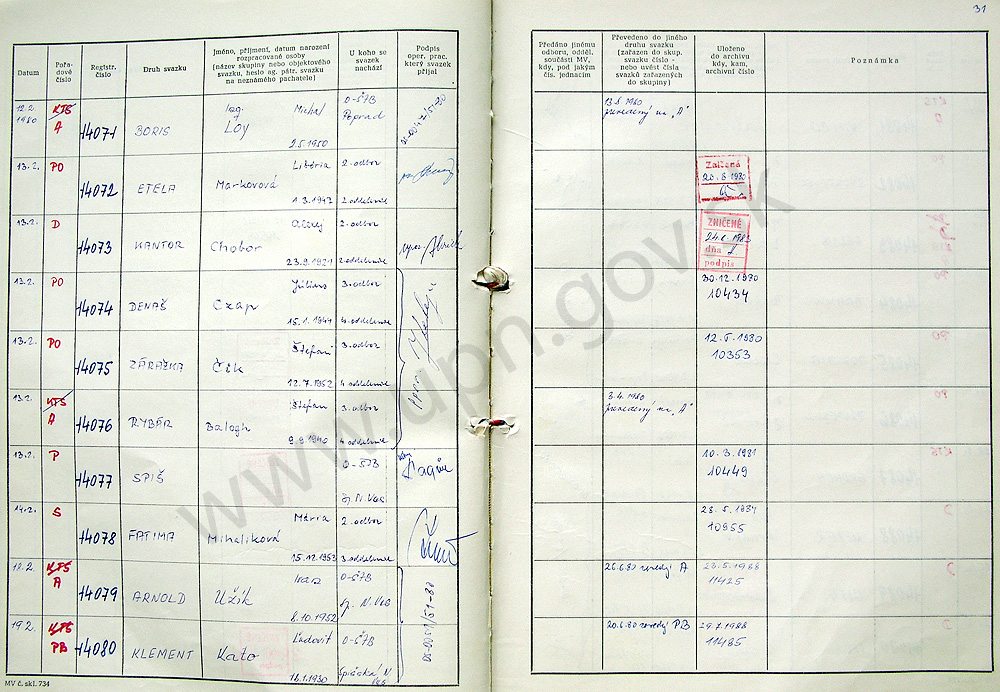 31
Datum
Pořa-
dové
číslo
Registr.
číslo
Druh svazku
Jméno, příjmení, datum narození
rozpracované osoby
(název skupiny nebo objektového
svazku, heslo ag. pátr. svazku
na neznámého pachatele)
U koho se
svazek
nachází
Podpis
oper. prac.
který svazek
přijal
Předáno jinému
odboru, odděl.
součásti MV,
kdy, pod jakým
čís. jednacím
Převedeno do jiného
druhu svazku
(zařazen do skup.
svazku číslo -
nebo uvést čísla
svazků zařazených
do skupiny)
Uloženo
do archivu
kdy, kam,
archivní číslo
Poznámka
12.2. 1980 KTS A 14071 BORIS Ing. Michal Loy 2.5.1950 O-ŠTB Poprad 13.5.1980 prevedený na „A"
13.2. PO 14072 ETELA Libória Markovová 1.3.1947 2. odbor 2 oddelenie Zničené 20.8.1980
13.2. D 14073 KANTOR Chobor 23.9.1921 2. odbor 2 oddelenie ZNIČENÉ dňa podpis
13.2. PO 14074 DENAŠ Július Czap 15.1.1944 3. odbor 4 oddelenie 30.12.1980 10434
13.2. PO 14075 ZÁRAŽKA Štefan Čík 12.7.1952 3. odbor 4 oddelenie 12.5.1980 10353
13.2. KTS A 14076 RYBÁR Štefan Balogh 9.9.1940 3. odbor 4 oddelenie 3.4.1980 prevedený na „A"
13.2. P 14077 SPIŠ O-ŠTB Sp. N. Ves 10.3.1981 10449
14.2. S 14078 FATIMA Mária Mihaliková 15.12.1953 2. odbor 3 oddelenie 28.5.1984 10955
18.2. KTS A 14079 ARNOLD Užík 8.10.1952 O-ŠTB Sp. N. Ves 26.6.80 A 23.5.1988 11425
19.2. KTS PB 14080 KLEMENT Ľudovít Kato 18.1.1930 O-ŠTB Spišská N. Ves 20.6.80 PB 29.7.1988 11485
MV č. skl. 734
www.upn.gov.sk